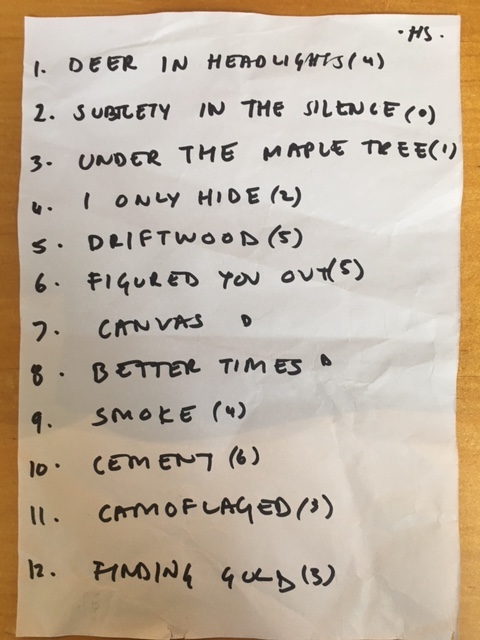 ·HS·
1. DEER IN HEADLIGHTS (4)
2. SUBTLETY IN THE SILENCE (0)
3. UNDER THE MAPLE TREE (1)
4. I ONLY HIDE (2)
5. DRIFTWOOD (5)
6. FIGURED YOU OUT (5)
7. CANVAS D
8. BETTER TIMES D
9. SMOKE (4)
10. CEMENT (6)
11. CAMOFLAGED (3)
12. FINDING GOLD (3)